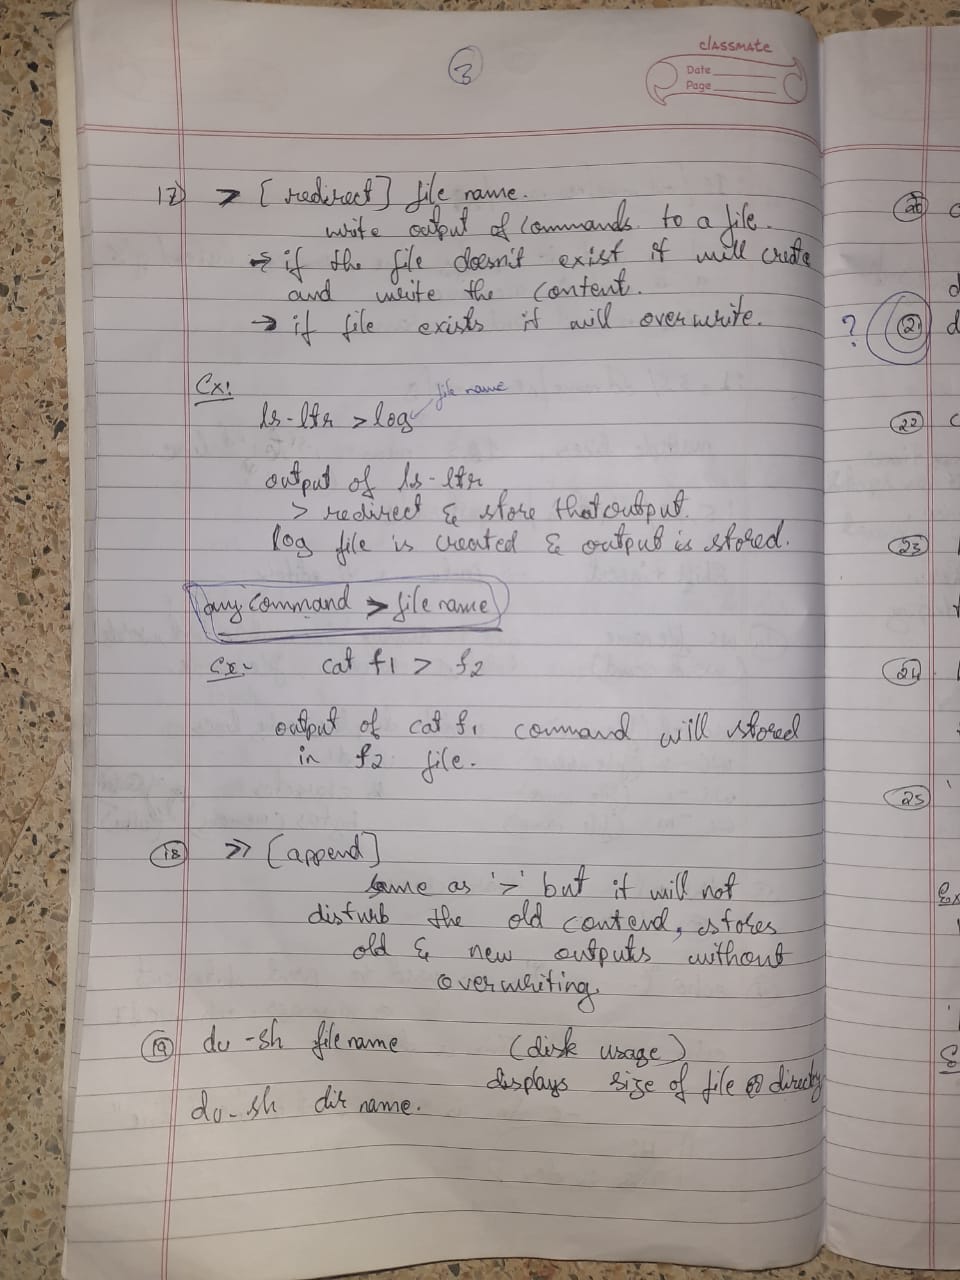 3
classmate
Date
Page
17) > [redirect] file name.
write output of commands to a file.
→ if the file doesn't exist it will create
and write the content.
→ if file exists it will overwrite.
Ex:
ls-ltr > log file name
output of ls-ltr
> redirect & store that output.
log file is created & output is stored.
any command > file name
Ex:- cat f1 > f2
output of cat f1 command will stored
in f2 file.
18 >> [append]
same as '>' but it will not
disturb the old contend, stores
old & new outputs without
overwriting.
19 du -sh file name (disk usage)
displays size of file or directory
du-sh dir name.
20
? 21
22
23
24
25
Ex